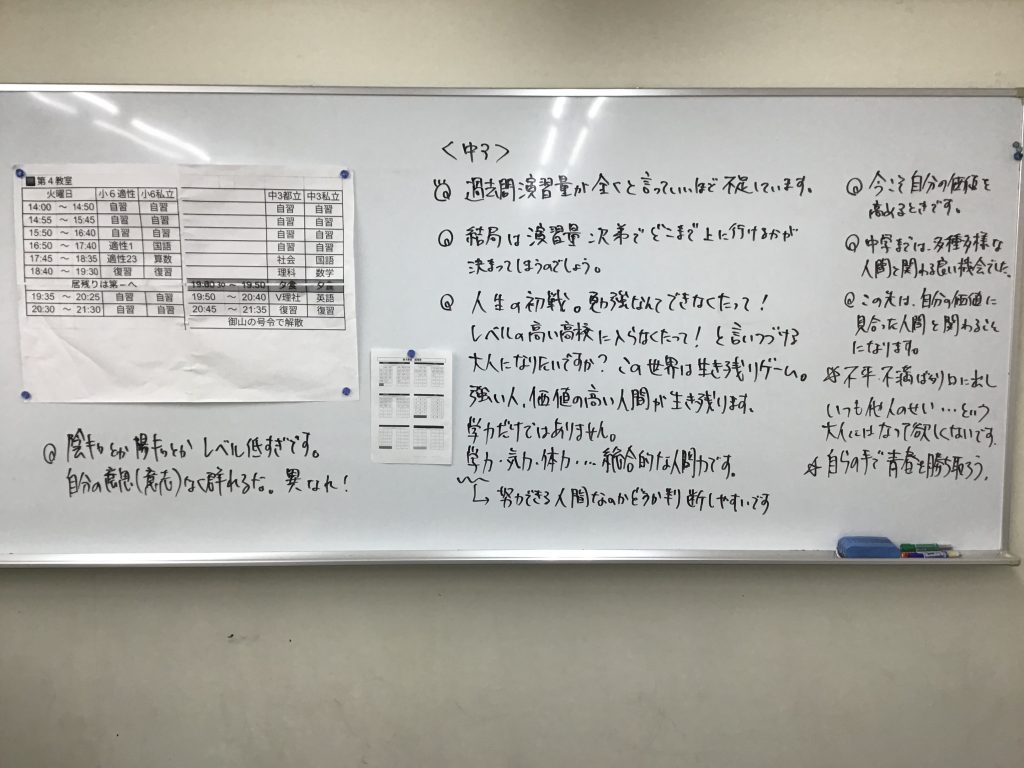 第4教室
火曜日 小6適性 小6私立 中3都立 中3私立
14:00 ～ 14:50 自習 自習 自習 自習
14:55 ～ 15:45 自習 自習 自習 自習
15:50 ～ 16:40 自習 自習 自習 自習
16:50 ～ 17:40 適性1 国語 自習 自習
17:45 ～ 18:35 適性23 算数 社会 国語
18:40 ～ 19:30 復習 復習 理科 数学
居残りは第一へ ～ 19:50 夕食 夕食
19:35 ～ 20:25 自習 自習 19:50 ～ 20:40 V理社 英語
20:30 ～ 21:30 自習 自習 20:45 ～ 21:35 復習 復習
御山の号令で解散
陰キャとか陽キャとか レベル低すぎです。
自分の意思(意志)なく群れるな。異なれ!
<中3>
過去問演習量が全くと言っていいほど不足しています。
結局は演習量次第でどこまで上に行けるかが
決まってしまうのでしょう。
人生の初戦。勉強なんてできなくたって!
レベルの高い高校に入らなくたって!と言いつづける
大人になりたいですか?この世界は生き残りゲーム。
強い人、価値の高い人間が生き残ります。
学力だけではありません。
学力・気力・体力・…総合的な人間力です。
努力できる人間なのかどうか判断しやすいです
今こそ自分の価値を
高めるときです。
中学までは、多種多様な
人間と関わる良い機会でした。
この先は、自分の価値に
見合った人間と関わること
になります。
☆不平・不満ばかり口に出し
いつも他人のせい…という
大人にはなって欲しくないです。
☆自らの手で青春を勝ち取ろう。